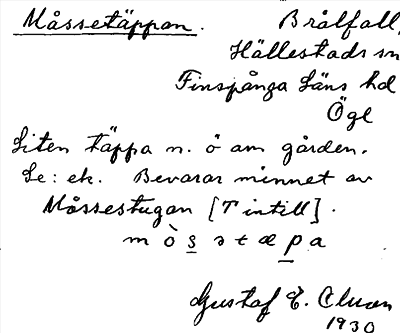 Måssetäppan. Brålfall,
Hällestads sn
Finspånga Läns hd
Ögl
Liten täppa n. ö am gården.
Le: ek. Bevarar minnet av
Måssestugan [T intill].
m ò s ə t æ p a
Gustaf E. Cluan
1930